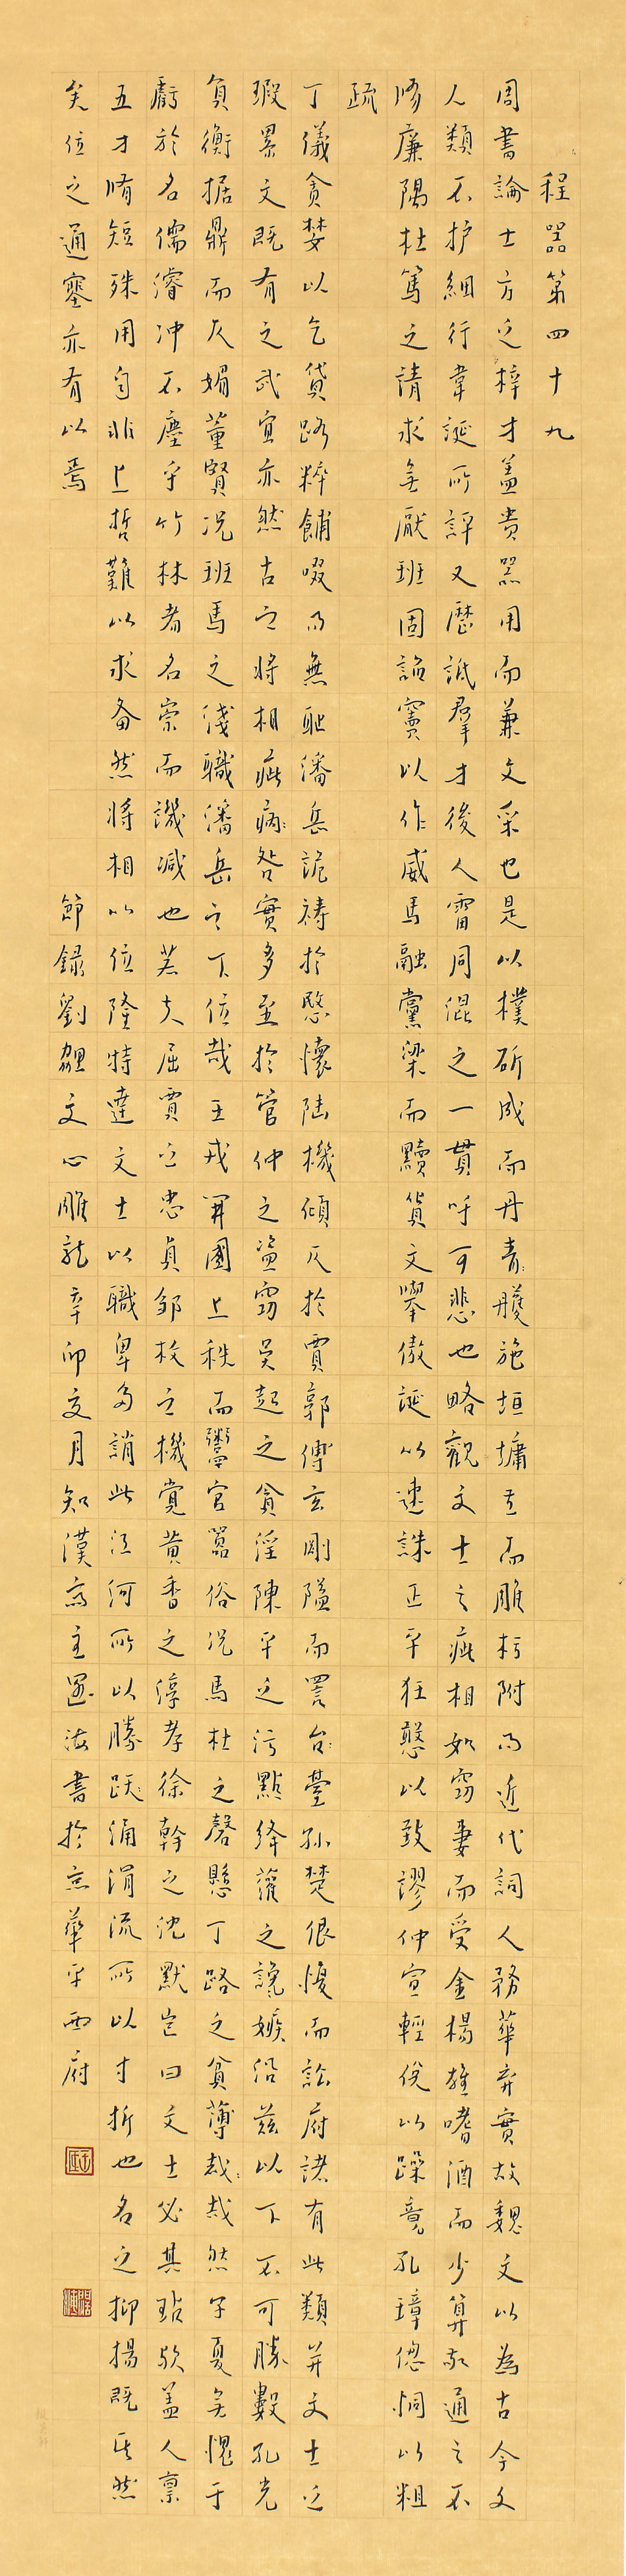 程器第四十九
周書論士方之梓才蓋貴器用而兼文采也是以樸斫成而丹青雘施垣墉立而雕杇附而近代詞人務華弃實故魏文以為古今文
人類不护細行韋誕所評又歷詆群才後人雷同混之一貫吁可悲也略觀文士之疵相如竊妻而受金楊雄嗜酒而少算敬通之不
脩廉隅杜篤之請求无厭班固諂竇以作威馬融黨梁而黷貨文舉傲誕以速誅正平狂憨以致謬仲宣輕侻以躁競孔璋偬恫以粗
疏
丁儀貪婪以乞貸路粹餔啜而無恥潘岳詭禱於愍懷陸機傾仄於賈郭傅玄剛隘而詈台臺孫楚很愎而訟府諸有此類并文士之
瑕累文既有之武宜亦然古之將相疵病咎實多至於管仲之盜竊吳起之貪淫陳平之污點絳灌之讒嫉沿茲以下不可勝數孔光
負衡据鼎而仄媚董賢况班馬之淺職潘岳之下位哉王戎開國上秩而鬻官囂俗况馬杜之磬懸丁路之貧薄哉哉然子夏无愧于
虧於名儒濬冲不塵乎竹林者名崇而譏減也若夫屈賈之忠貞鄒枚之機覺黃香之淳孝徐幹之沈默豈曰文士必其玷歟蓋人禀
五才脩短殊用自非上哲難以求备然將相以位隆特達文士以職卑多誚此江河所以騰躍涌涓流所以寸折也名之抑揚既其然
矣位之通塞亦有以焉 節録劉勰文心雕龍辛卯亥月知漢齋主海書於京華平西府